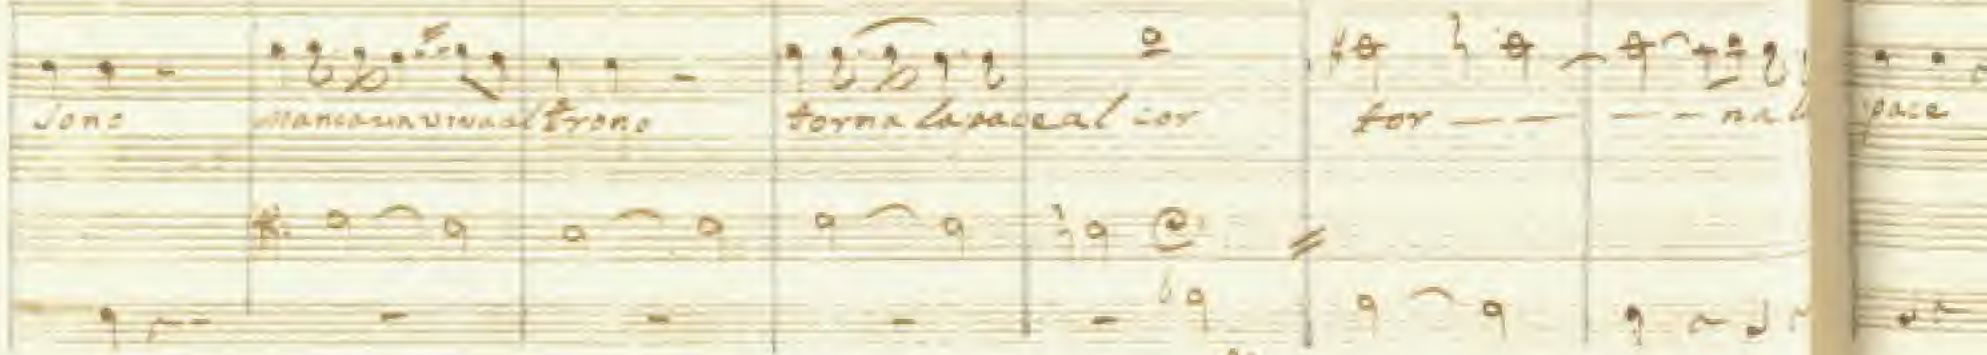 sono mancava viva al trono torna la pace al cor tor — — — — na la pace